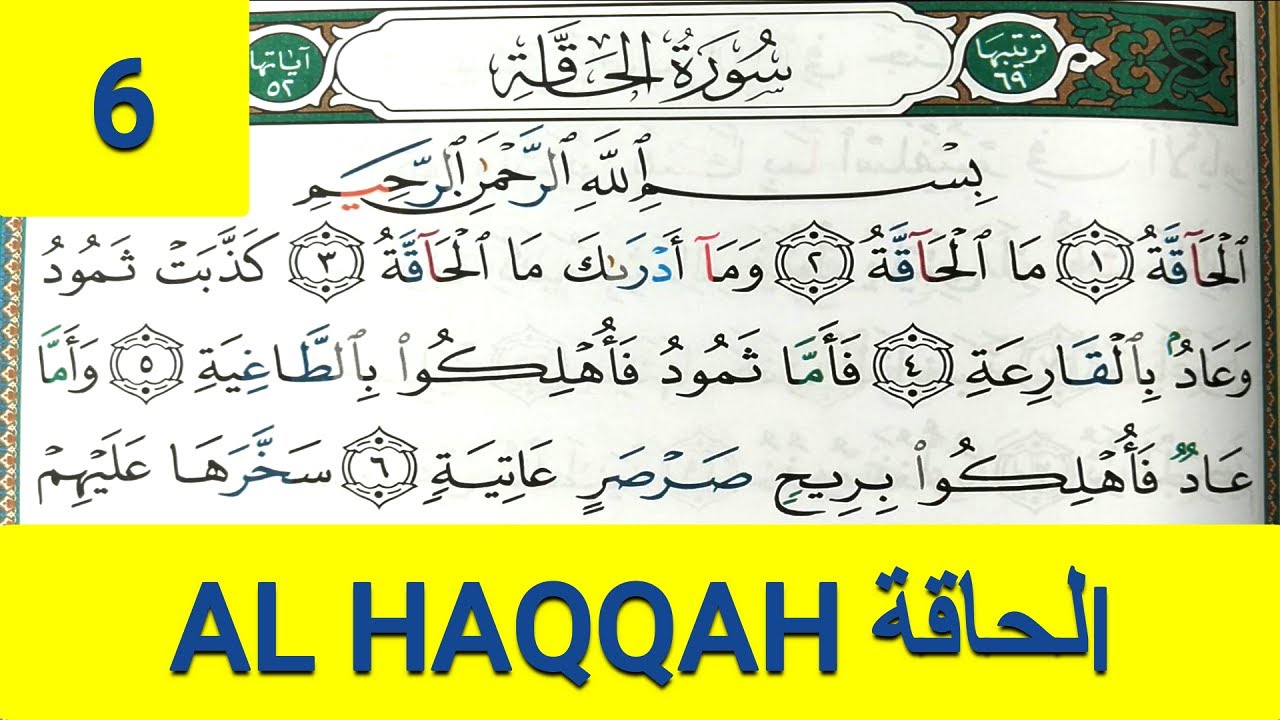 6
ترتيبها ٦٩
سُورَةُ الحَاقَّةِ
آياتها ٥٢
بِسْمِ ٱللَّهِ ٱلرَّحْمَٰنِ ٱلرَّحِيمِ
ٱلْحَآقَّةُ ١ مَا ٱلْحَآقَّةُ ٢ وَمَآ أَدْرَىٰكَ مَا ٱلْحَآقَّةُ ٣ كَذَّبَتْ ثَمُودُ
وَعَادُۢ بِٱلْقَارِعَةِ ٤ فَأَمَّا ثَمُودُ فَأُهْلِكُوا۟ بِٱلطَّاغِيَةِ ٥ وَأَمَّا
عَادٌ فَأُهْلِكُوا۟ بِرِيحٍ صَرْصَرٍ عَاتِيَةٍ ٦ سَخَّرَهَا عَلَيْهِمْ
AL HAQQAH الحاقة